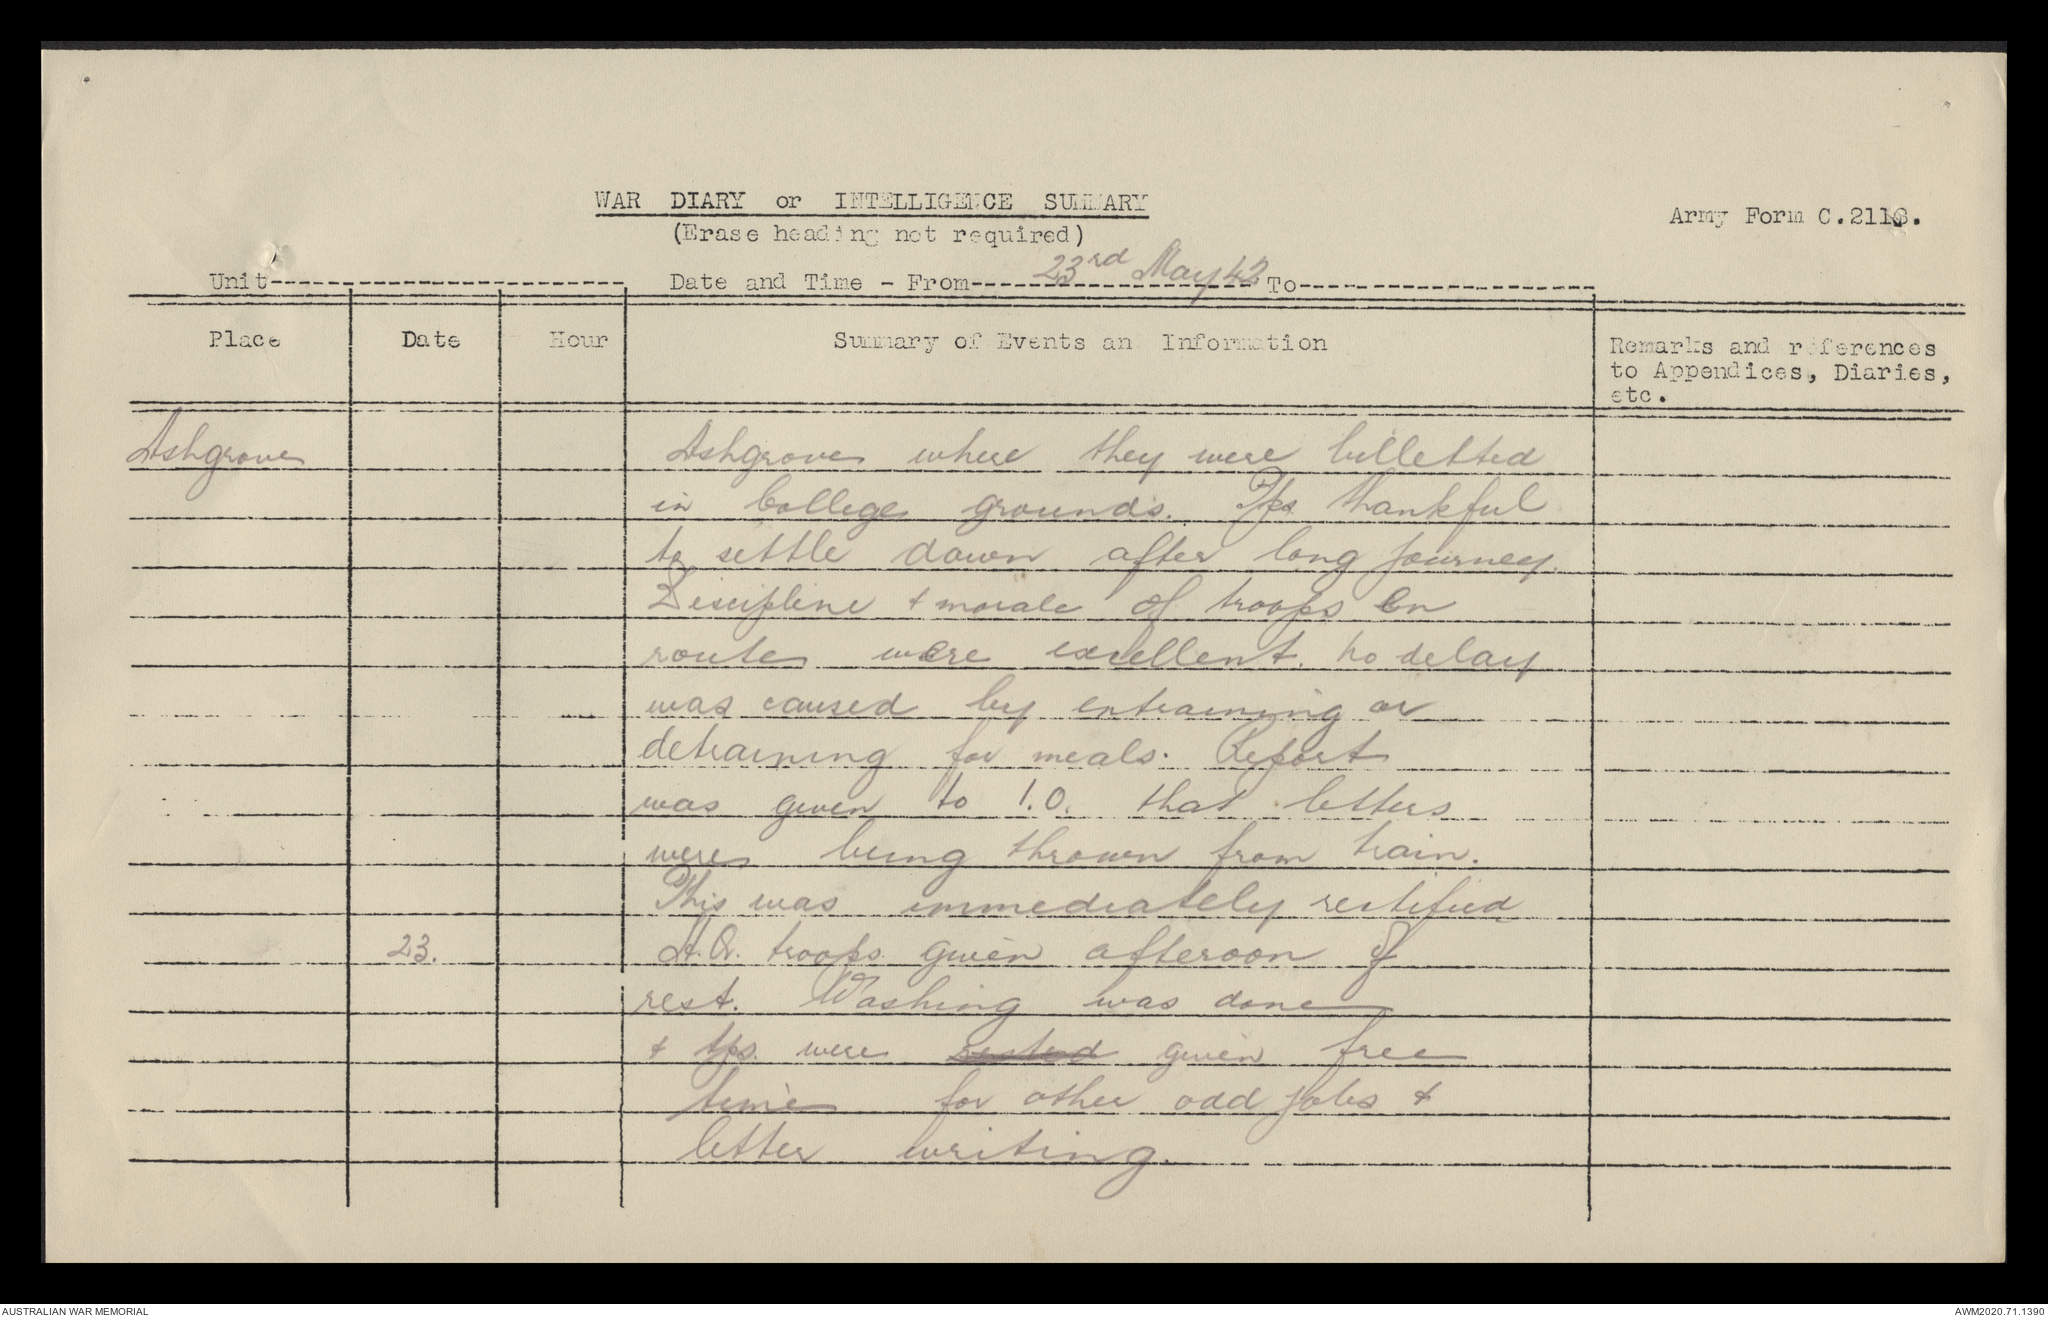 WAR DIARY or INTELLIGENCE SUMMARY
(Erase heading not required)
Army Form C.2118.
Unit Date and Time - From 23rd May 42 To
Place Date Hour Summary of Events and Information Remarks and references
to Appendices, Diaries,
etc.
Ashgrove Ashgrove where they were billetted
in College grounds. Tps thankful
to settle down after long journey.
Discipline & morale of troops En
route were excellent. No delay
was caused by entraining or
detraining for meals. Report
was given to I.O. that letters
were being thrown from train.
This was immediately rectified
23. H.Q. troops given afteroon of
rest. Washing was done
& tps. were rested given free
time for other odd jobs &
letter writing.
AUSTRALIAN WAR MEMORIAL AWM2020.71.1390